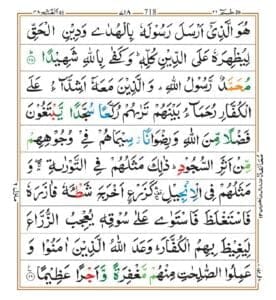 هُوَ الَّذِیْۤ اَرْسَلَ رَسُوْلَهٗ بِالْهُدٰی وَ دِیْنِ الْحَقِّ
لِیُظْهِرَهٗ عَلَی الدِّیْنِ كُلِّهٖ ؕ وَ كَفٰی بِاللّٰهِ شَهِیْدًا ؕ۝۲۸
مُحَمَّدٌ رَّسُوْلُ اللّٰهِ ؕ وَ الَّذِیْنَ مَعَهٗۤ اَشِدَّآءُ عَلَی
الْكُفَّارِ رُحَمَآءُ بَیْنَهُمْ تَرٰىهُمْ رُكَّعًا سُجَّدًا یَّبْتَغُوْنَ
فَضْلًا مِّنَ اللّٰهِ وَ رِضْوَانًا ؗ سِیْمَاهُمْ فِیْ وُجُوْهِهِمْ
مِّنْ اَثَرِ السُّجُوْدِ ؕ ذٰلِكَ مَثَلُهُمْ فِی التَّوْرٰىةِ ۛۖۚ وَ
مَثَلُهُمْ فِی الْاِنْجِیْلِ ۛ۫ۚ كَزَرْعٍ اَخْرَجَ شَطْـَٔهٗ فَاٰزَرَهٗ
فَاسْتَغْلَظَ فَاسْتَوٰی عَلٰی سُوْقِهٖ یُعْجِبُ الزُّرَّاعَ
لِیَغِیْظَ بِهِمُ الْكُفَّارَ ؕ وَعَدَ اللّٰهُ الَّذِیْنَ اٰمَنُوْا وَ
عَمِلُوا الصّٰلِحٰتِ مِنْهُمْ مَّغْفِرَةً وَّ اَجْرًا عَظِیْمًا ۝۲۹